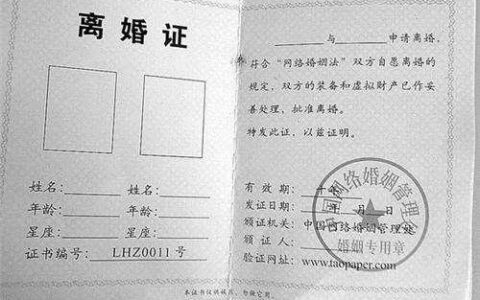 离婚证
姓名: 姓名:
年龄: 年龄:
星座: 星座:
证书编号: LHZ0011 号
与 申请离婚。
符合“网络婚姻法”双方自愿离婚的
规定，双方的装备和虚拟财产已作妥
善处理，批准离婚。
特发此证，以兹证明。
有效期: 年
发证日期: 年 月 日
颁证机关: 中国网络婚姻管理处
颁证人:
验证网址: www.taopaper.com
中国网络婚姻管理
婚姻专用章
本证书仅供娱乐，勿做它用。